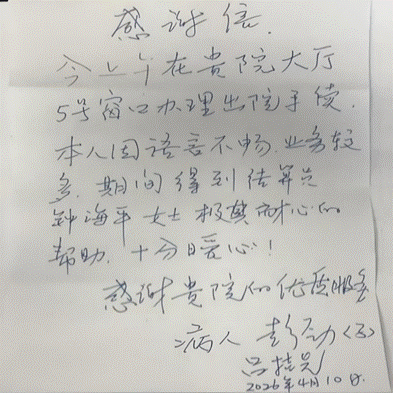 感谢信.
今上午在贵院大厅
5号窗口办理出院手续.
本人因语言不畅.业务较
多.期间得到结算员
钟海平女士极其耐心的
帮助.十分暖心!
感谢贵院的优质服务
病人 彭
2026年4月10日.